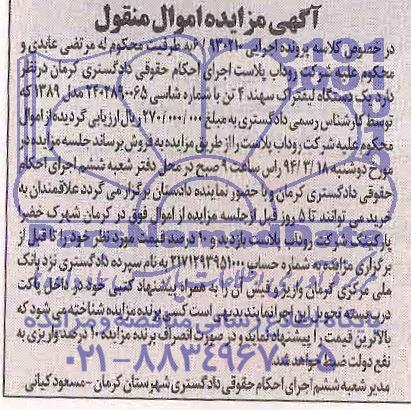 آگهی مزایده اموال منقول
در خصوص کلاسه پرونده اجرایی ۹۳۰۲۱۰/ به طرفیت محکوم له مرتضی عابدی و
محکوم علیه شرکت روداب پلاست اجرای احکام حقوقی دادگستری کرمان در نظر
دارد یک دستگاه لیفتراک سهند ۴ تن با شماره شاسی مدل ۱۳۸۹ که
توسط کارشناس رسمی دادگستری به مبلغ ۲۷۰/۰۰۰/۰۰۰ ریال ارزیابی گردیده از اموال
محکوم علیه شرکت روداب پلاست را از طریق مزایده به فروش برساند جلسه مزایده در
مورخ دوشنبه ۹۶/۳/۱۸ راس ساعت ۹ صبح در محل دفتر شعبه ششم اجرای احکام
حقوقی دادگستری کرمان و با حضور نماینده دادستان برگزار می گردد علاقمندان به
خرید می توانند تا ۵ روز قبل از جلسه مزایده از اموال فوق در کرمان شهرک خضر
پارکینگ شرکت روداب پلاست بازدید و ۱۰ درصد قیمت مورد نظر خود را تا قبل از
برگزاری مزایده به شماره حساب ۲۱۷۱۲۹۳۹۵۱۰۰۰ به نام سپرده دادگستری نزد بانک
ملی مرکزی کرمان واریز و فیش آن را به همراه پیشنهاد کتبی خود در داخل پاکت
در بسته تحویل این اجرا نمایند بدیهی است کسی برنده مزایده شناخته می شود که
بالاترین قیمت را پیشنهاد نماید و در صورت انصراف برنده مزایده ۱۰ درصد واریزی به
نفع دولت ضبط خواهد شد.
مدیر شعبه ششم اجرای احکام حقوقی دادگستری شهرستان کرمان - مسعود کیانی
پایگاه اطلاع رسانی مناقصه و مزایده
۰۲۱-۸۸۳۴۹۶۷۰